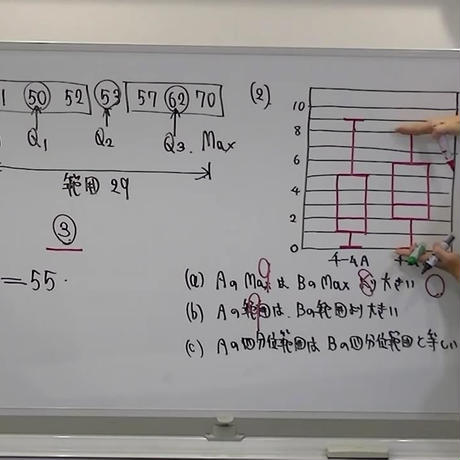 1 50 52 53 57 62 70
Q1 Q2 Q3. Max
範囲 29
③
=55.
(2)
10
8
6
4
2
0
チームA
(a) Aの Maxは Bの Max より大きい
9
8
(b) Aの範囲は、Bの範囲より大きい
9
(c) Aの四分位範囲は Bの四分位範囲と等しい